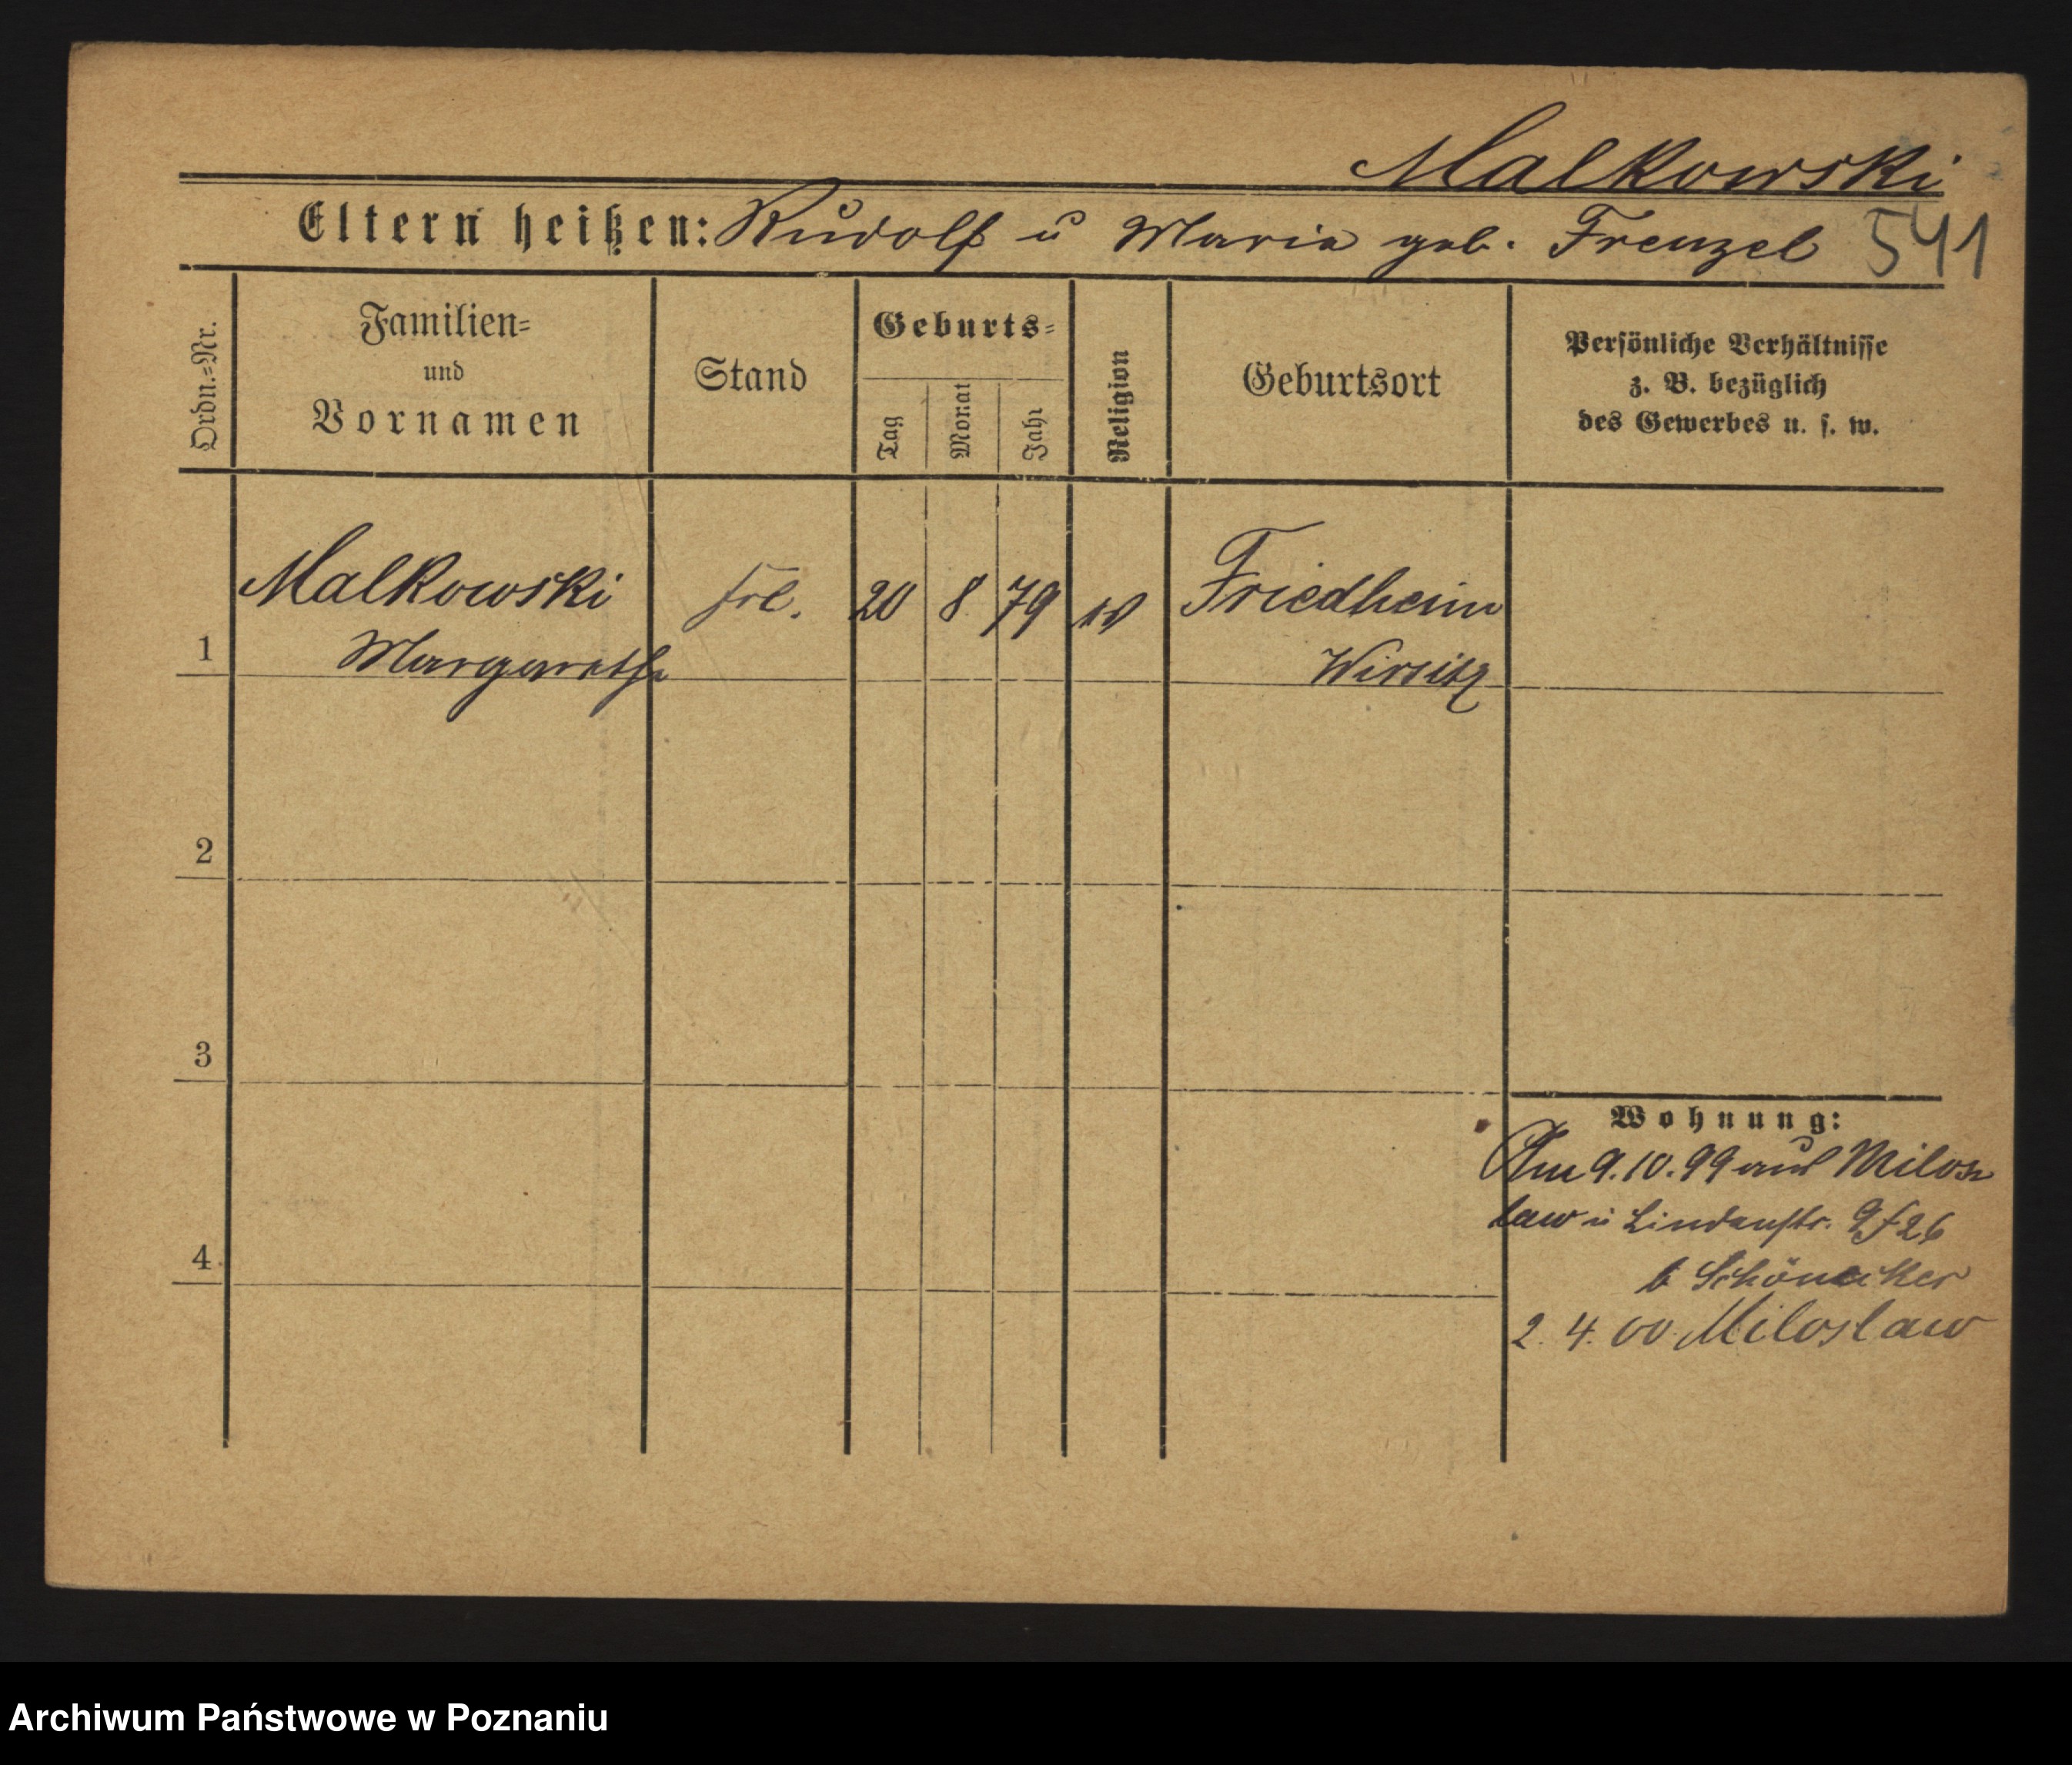 Malkowski
Eltern heißen: Rudolf u Maria geb. Frenzel 541
Ordn.-Nr.
Familien-
und
Vornamen
Stand
Geburts-
Tag
Monat
Jahr
Religion
Geburtsort
Persönliche Verhältnisse
z. B. bezüglich
des Gewerbes u. s. w.
1
Malkowski
Margarethe
frl.
20
8
79
Friedheim
Wirsitz
2
3
4
Wohnung:
Am 9.10.99 aus Milos
law n Lindenstr. 26
b
2. 4. 00 Miloslaw
Archiwum Państwowe w Poznaniu